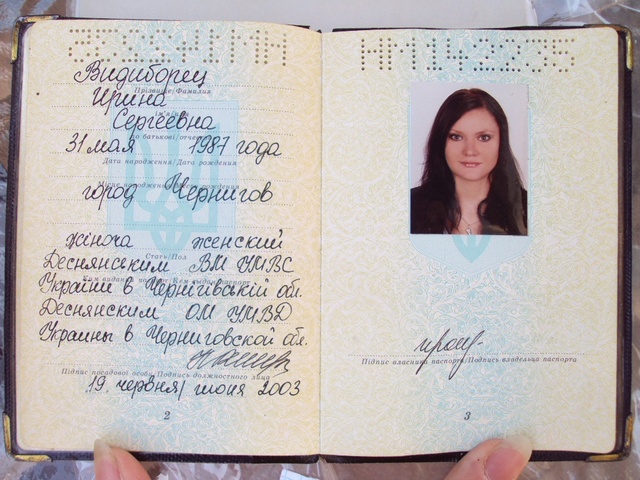 Видиборец
Прізвище/Фамилия
Ирина
Сергеевна
по батькові/отчество
31 мая 1987 года
Дата народження/Дата рождения
город Чернигов
жіноча женский
Стать/Пол
Деснянським ВМ УМВС
України в Чернігівській обл.
Деснянским ОМ УМВД
Украины в Черниговской обл.
Підпис посадової особи/Подпись должностного лица
19 червня/июня 2003
2
Підпис власника паспорта/Подпись владельца паспорта
3